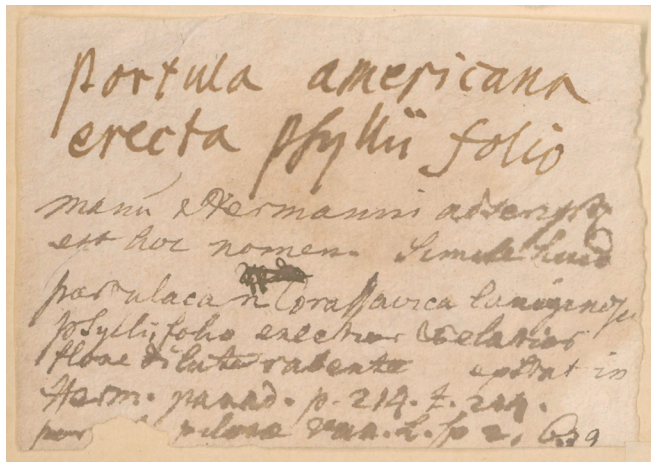 portula americana
erecta psyllii folio
manu Hermanni adscript
est hoc nomen. Simile
portulaca Corassavica lanuginosa
psyllii folio erectior & elatior
flore dilute rubente extat in
Herm. parad. p. 214. t. 214.
por pilosa Van. L. sp 2. 639